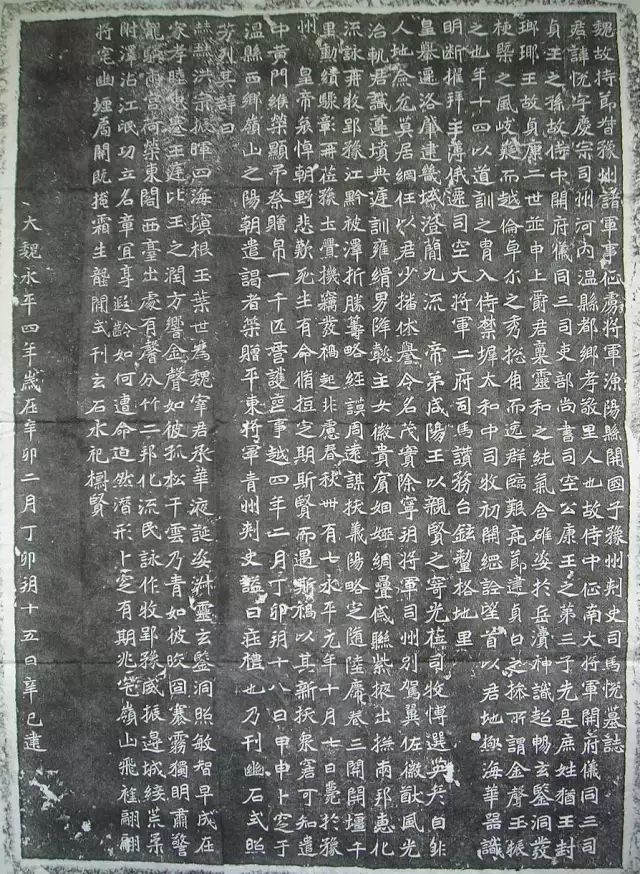 魏故持節督豫州諸軍事征虜將軍漁陽縣開國子豫州刺史司馬悅墓誌
君諱悅字慶宗司州河內溫縣都鄉孝敬里人也故侍中征南大將軍開府儀同三司
貞王之孫故侍中開府儀同三司吏部尚書司空公康王之第三子先是庶姓猶王封
瑯瑘王故貞康二世並申上爵君稟靈和之純氣含確姿於岳瀆神識超暢玄鑒洞發
梗槩之風岐嶷而越倫卓尔之秀揔角而逸群臨艱亮節建貞白之操所謂金聲玉振
之也年十四以道訓之冑入侍禁墀太和中司牧初開緫詮望首以君地極海華器識
明斷擢拜主薄俄遷司空大將軍二府司馬讚務台鉉釐格地里
皇輿遷洛肇建畿域澄簡九流　帝弟咸陽王以親賢之寄光莅司牧博選英彥自非
人地僉允莫居綱任以君少播休譽令名茂實除寧朔將軍司州別駕翼佐徽猷風光
治軌君識遵墳典庭訓雍緝男降懿主女徽貴賓姻婭綢疊戚聯紫掖出撫兩邦惠化
流詠再牧郢豫江黔被澤折勝籌略經謨周遠謀扶義陽略定隨陸廓巷三開開壃千
里勳績驟彰再莅豫土舋機竊發禍起非慮春秋卌有七永平元年十月七日薨於豫
州　皇帝哀悼朝野悲歎死生有命脩短定期斯賢而遇斯禍以其新抚衆窘可知遣
中黃門緱榮顯弔祭贈帛一千匹營護喪事越四年二月丁卯朔十八日甲申卜窆于
溫縣西鄉嶺山之陽朝遣謁者榮贈平東將軍青州刺史謚曰莊禮也乃刊幽石式照
芳烈其辭曰
赫赫洪宗振暉四海瓊根玉葉世為魏宰君承華液誕姿淋靈玄鑒洞照敏智早成在
家孝睦忠蹇王庭比王之潤方響金聲如彼孤松干雲乃青如彼皎囧褰霧獨明肅警
龍躬宮荷榮東閤西臺出處有馨分竹二邦化流民詠作牧郢豫威振邊城綏荒柔
附澤沾江氓功立名章宜享遐齡如何遭命迫然潛形卜窆有期兆宅嶺山飛旌翩翩
將宅幽堙扃開旣掩霜生壟間式刊玄石永祀標賢
大魏永平四年歲在辛卯二月丁卯朔十五日辛巳建